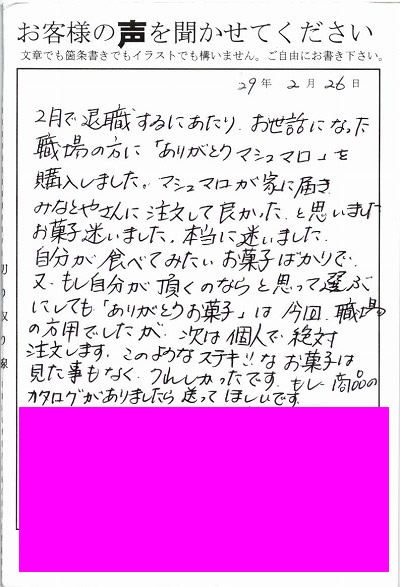 お客様の声を聞かせてください
文章でも箇条書きでもイラストでも構いません。ご自由にお書き下さい。
29年 2月 26日
2月で退職するにあたり、お世話になった
職場の方に「ありがとうマシュマロ」を
購入しました。マシュマロが家に届き
みなとやさんに注文して良かった、と思いました
お菓子迷いました。本当に迷いました。
自分が食べてみたいお菓子ばかりで、
又、もし自分が頂くのならと思って選ぶ
にしても「ありがとうお菓子」は今回、職場
の方用でしたが、次は個人で絶対
注文します。このようなステキ!!なお菓子は
見た事もなく、うれしかったです。もし商品の
カタログがありましたら送ってほしいです
切り取り線